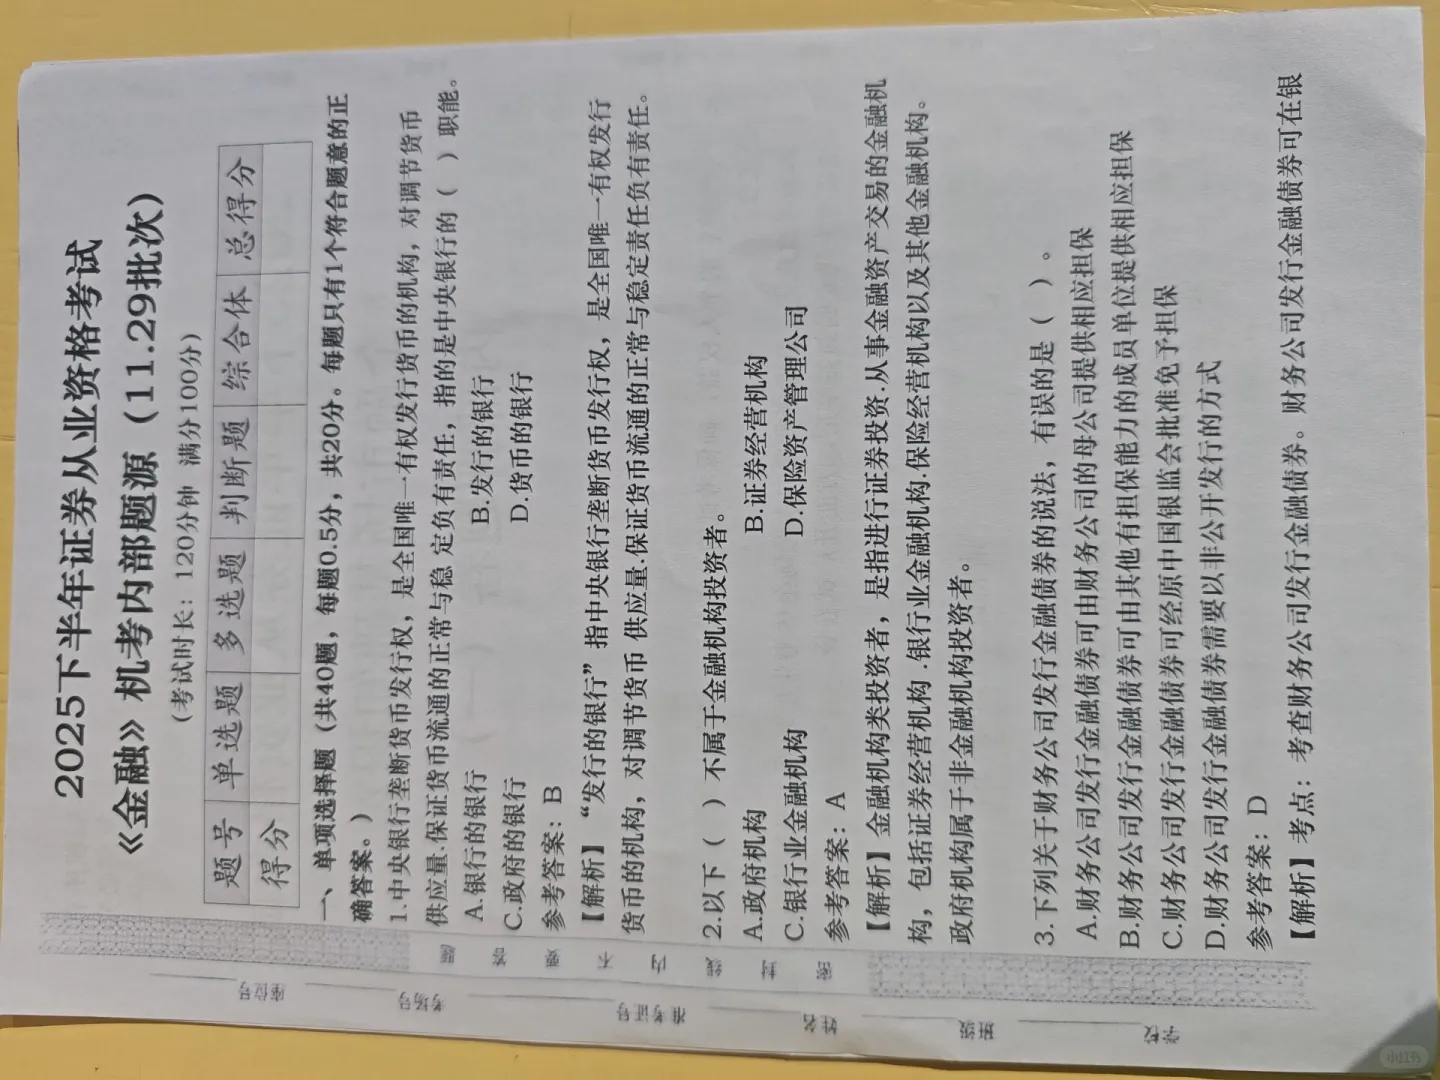 2025下半年证券从业资格考试
《金融》机考内部题源（11.29批次）
（考试时长：120分钟 满分100分）
题号 单选题 多选题 判断题 综合体 总得分
得分
一、单项选择题（共40题，每题0.5分，共20分。每题只有1个符合题意的正
确答案。）
1.中央银行垄断货币发行权，是全国唯一有权发行货币的机构，对调节货币
供应量.保证货币流通的正常与稳 定负有责任，指的是中央银行的（ ）职能。
A.银行的银行 B.发行的银行
C.政府的银行 D.货币的银行
参考答案：B
【解析】“发行的银行”指中央银行垄断货币发行权，是全国唯一有权发行
货币的机构，对调节货币 供应量.保证货币流通的正常与稳定责任负有责任。
2.以下（ ）不属于金融机构投资者。
A.政府机构 B.证券经营机构
C.银行业金融机构 D.保险资产管理公司
参考答案：A
【解析】金融机构类投资者，是指进行证券投资.从事金融资产交易的金融机
构，包括证券经营机构 .银行业金融机构.保险经营机构以及其他金融机构。
政府机构属于非金融机构投资者。
3.下列关于财务公司发行金融债券的说法，有误的是（ ）。
A.财务公司发行金融债券可由财务公司的母公司提供相应担保
B.财务公司发行金融债券可由其他有担保能力的成员单位提供相应担保
C.财务公司发行金融债券可经原中国银监会批准免予担保
D.财务公司发行金融债券需要以非公开发行的方式
参考答案：D
【解析】考点：考查财务公司发行金融债券。财务公司发行金融债券可在银
座位号
考场号
准考证号
姓名
班级
学校
密
封
线
内
不
要
答
题
小红书